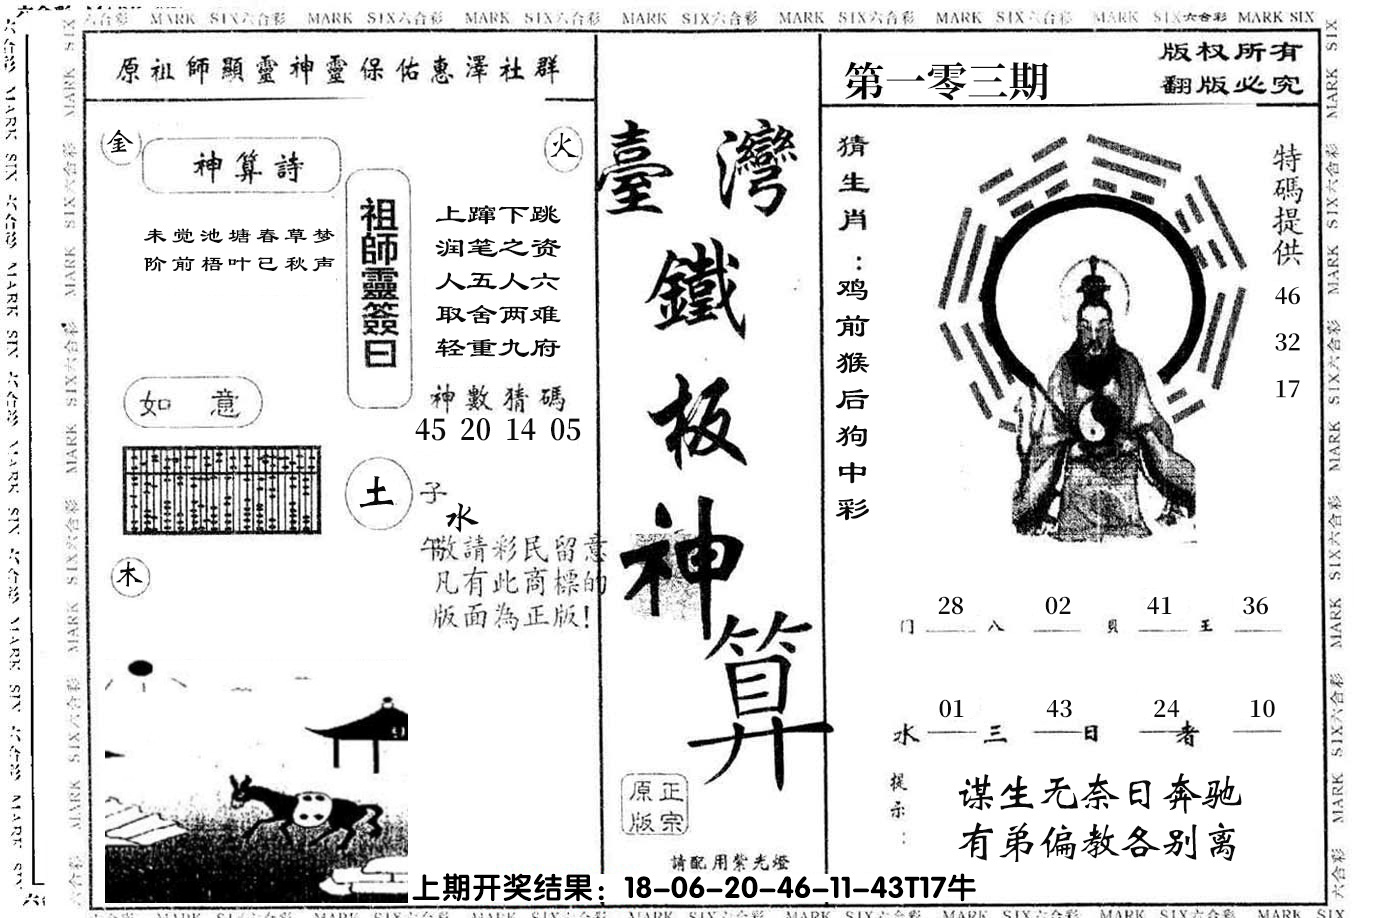 六合彩 MARK SIX六合彩 MARK SIX六合彩 MARK SIX六合彩 MARK SIX六合彩 MARK SIX六合彩 MARK SIX六合彩 MARK SIX六合彩 MARK SIX
原祖師顯靈神靈保佑惠澤社群
金
神算詩
火
未觉池塘春草梦
阶前梧叶已秋声
祖師靈簽曰
上蹿下跳
润笔之资
人五人六
取舍两难
轻重九府
神數猜碼
45 20 14 05
如 意
土
子
水
午
木
敬請彩民留意
凡有此商標的
版面為正版!
臺灣
鐵
板
神
算
正宗
原版
請配用紫光燈
第一零三期
版权所有
翻版必究
猜生肖:鸡前猴后狗中彩
特碼提供
46
32
17
28 02 41 36
门 八 貝 王
01 43 24 10
水 三 日 者
提示:
谋生无奈日奔驰
有弟偏教各别离
上期开奖结果：18-06-20-46-11-43T17牛